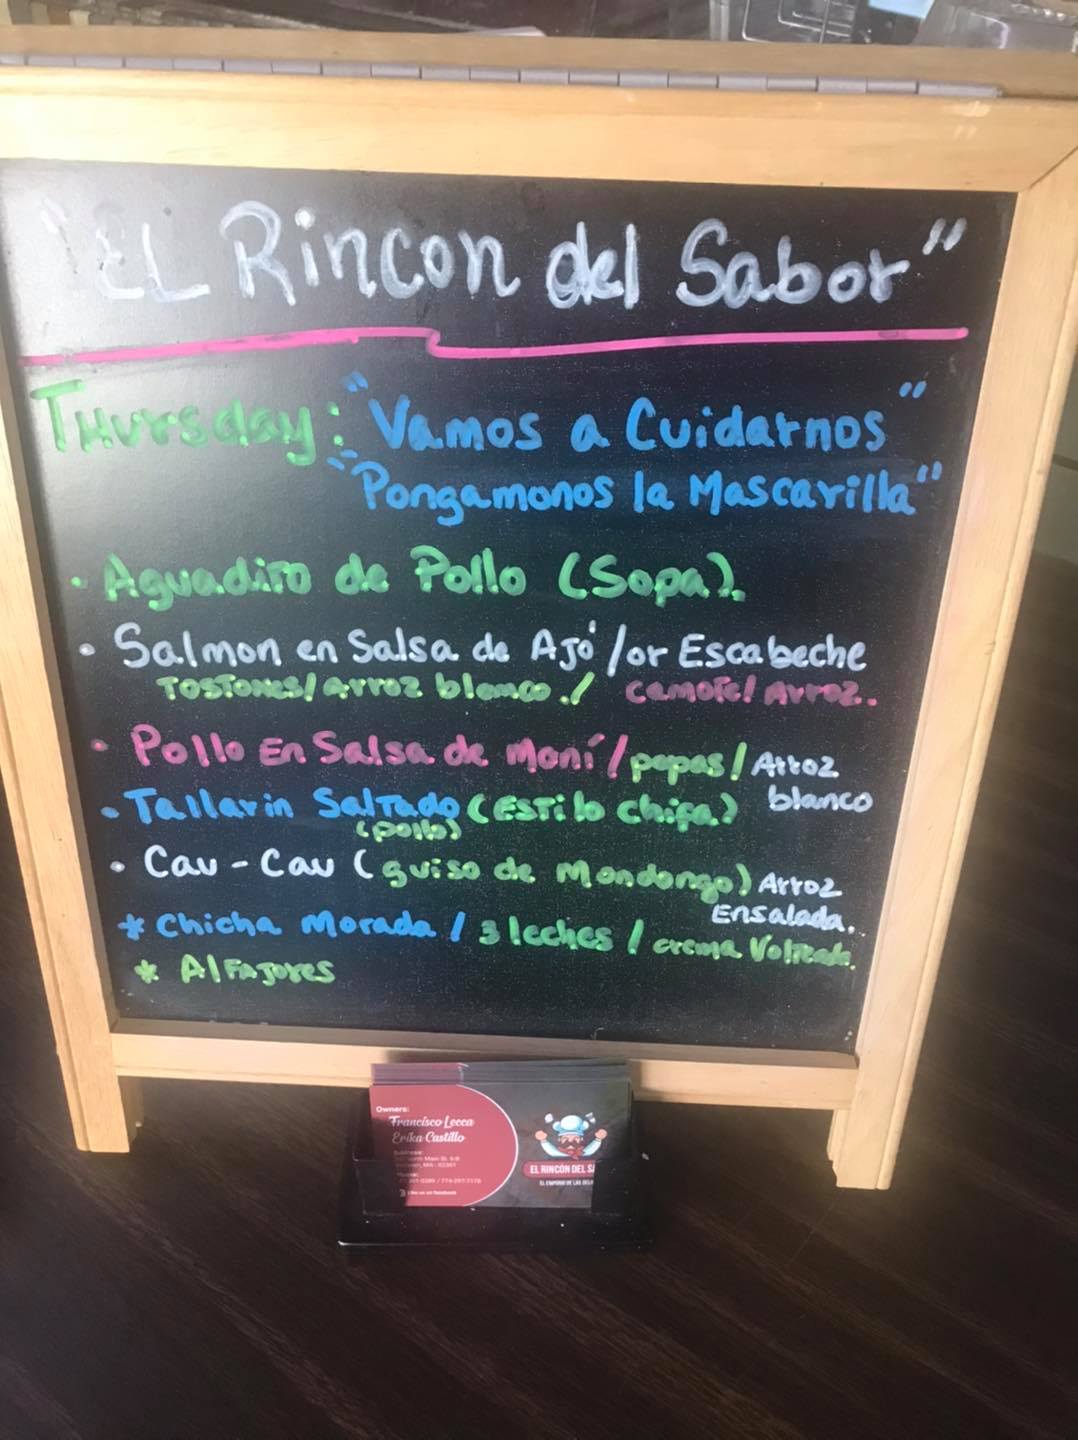 "EL Rincon del Sabor"
Thursday: "Vamos a Cuidarnos"
"Pongamonos la Mascarilla"
· Aguadito de Pollo (Sopa).
· Salmon en Salsa de Ajó /or Escabeche
Tostones/arroz blanco./ camote/ Arroz.
· Pollo En Salsa de Moní /papas/ Arroz
blanco
· Tallarin Saltado (Estilo chifa)
(pollo)
· Cau-Cau (guiso de Mondongo) Arroz
Ensalada.
* Chicha Morada / 3 leches / crema Volteada.
* Alfajores
Owners:
Francisco Lecca
Erika Castillo
Address:
North Main St.
MA - 02301
Phone:
/ 774-297-7178
Like us on facebook
EL RINCÓN DEL SA
EL EMPORIO DE LAS